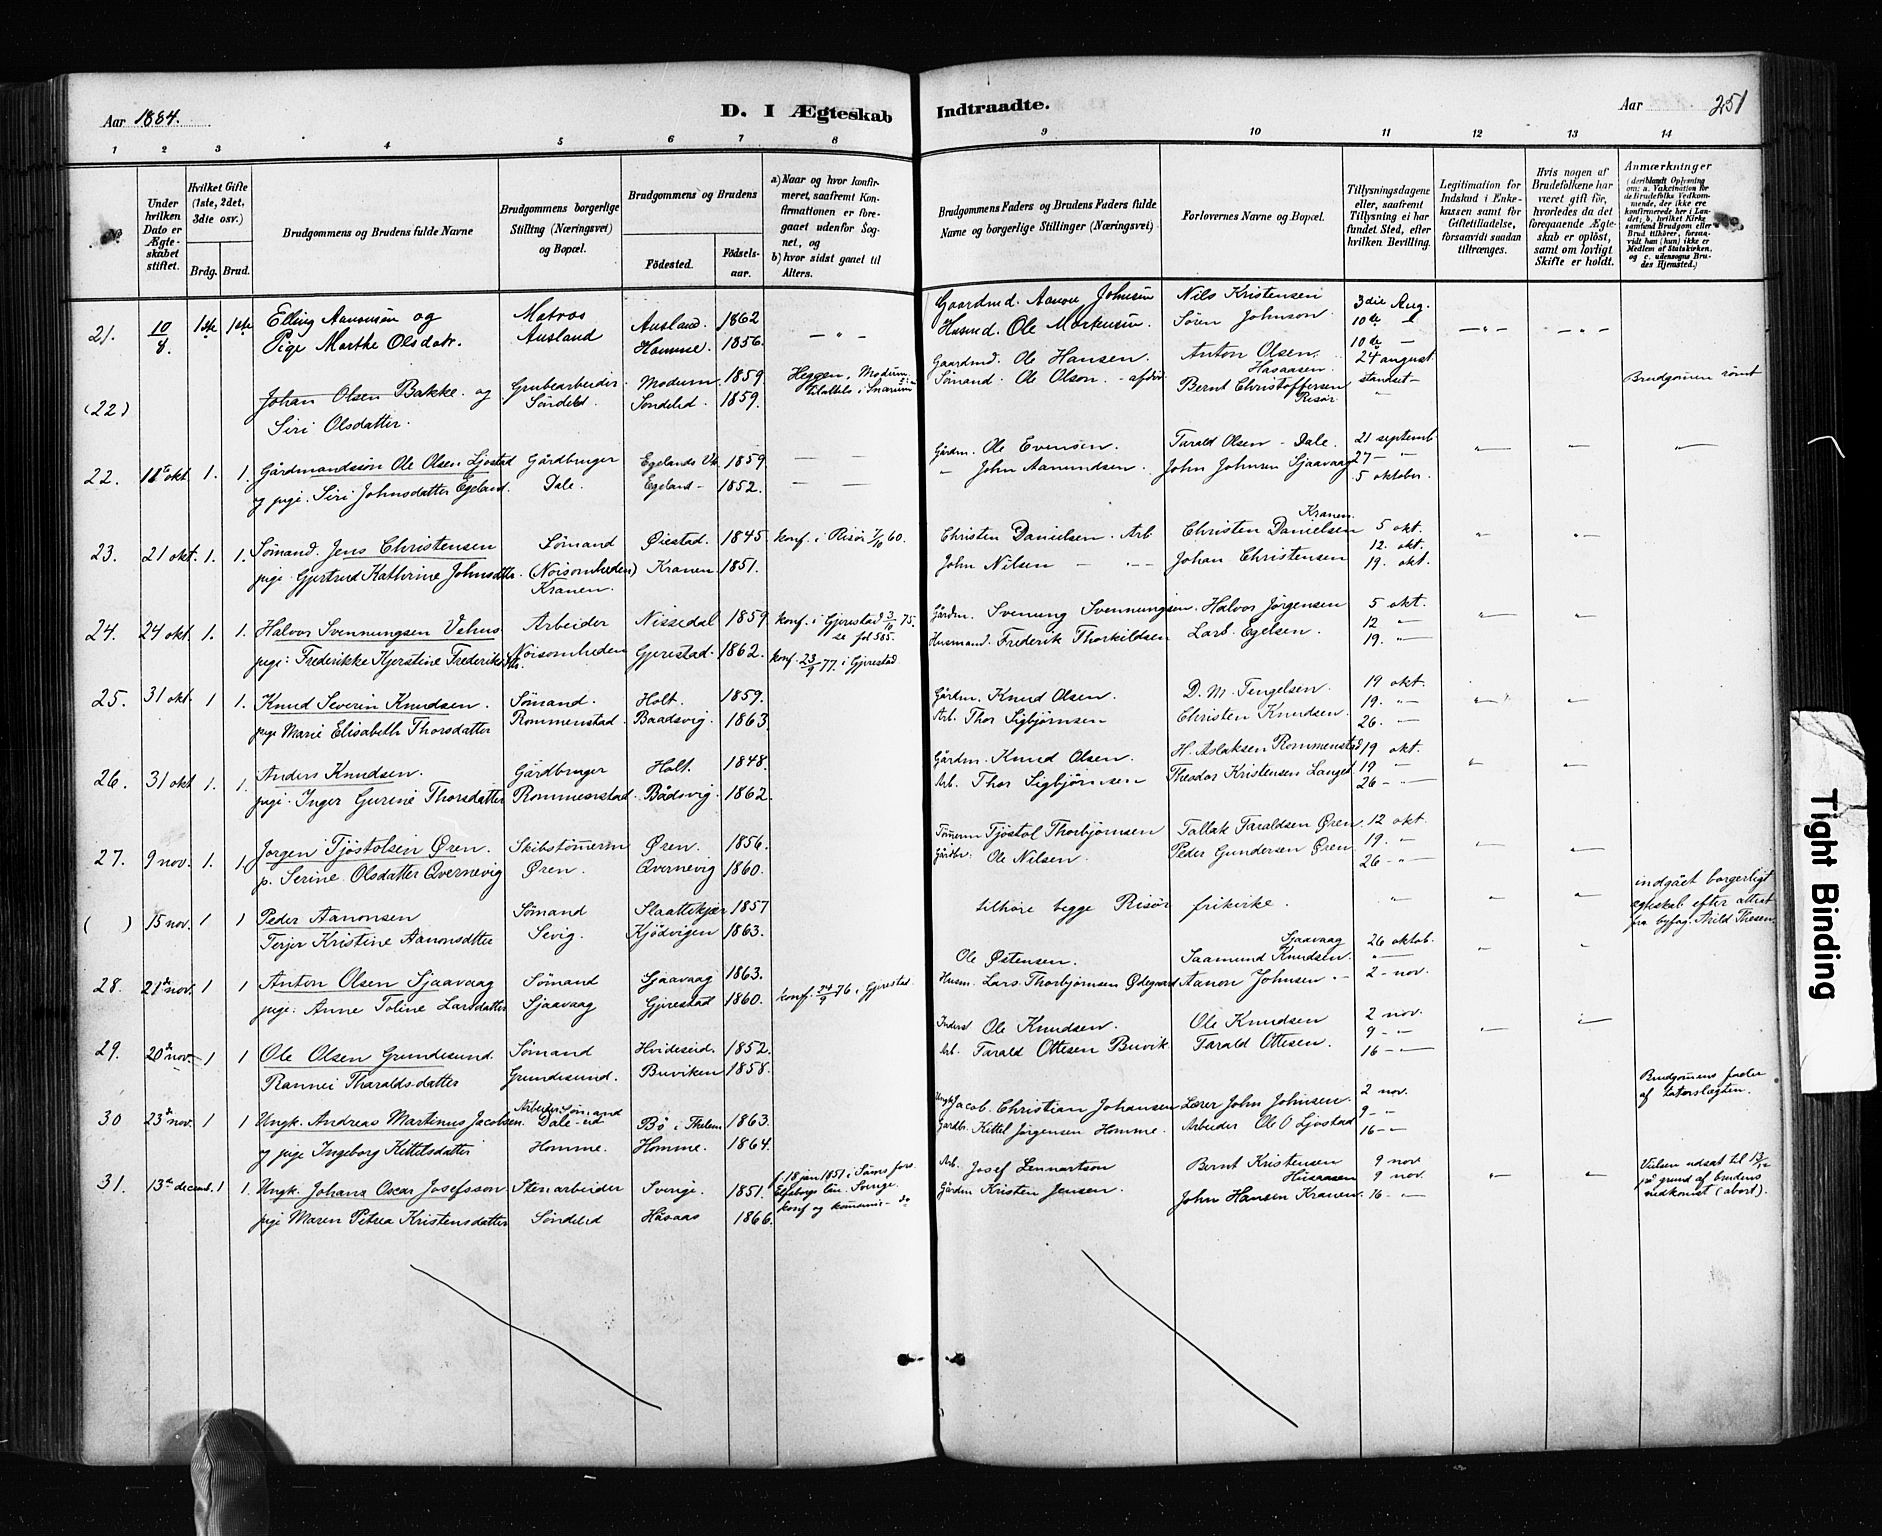 Aar 1884.
D. I Ægteskab Indtraadte.
Aar 251
1 2 3 4 5 6 7 8 9 10 11 12 13 14
Under hvilken Dato er Ægteskabet stiftet.
Hvilket Gifte (1ste, 2det, 3die osv.)
Brdg. Brud.
Brudgommens og Brudens fulde Navne
Brudgommens borgerlige Stilling (Næringsvei) og Bopæl.
Brudgommens og Brudens
Fødested. Fødselsaar.
a) Naar og hvor konfirmeret, saafremt Konfirmationen er foregaaet udenfor Sognet, og
b) hvor sidst gaaet til Alters.
Brudgommens Faders og Brudens Faders fulde Navne og borgerlige Stillinger (Næringsvei)
Forlovernes Navne og Bopæl.
Tillysningsdagene eller, saafremt Tillysning ei har fundet Sted, efter hvilken Bevilling.
Legitimation for Indskud i Enkekassen samt for Giftetilladelse, forsaavidt saadan tiltrænges.
Hvis nogen af Brudefolkene har været gift før, hvorledes da det foregaaende Ægteskab er opløst, samt om lovligt Skifte er holdt.
Anmærkninger (deriblandt Oplysning om: a. Vaksination for de Brudefolks Vedkommende, der ikke ere konfirmerede her i Landet; b. hvilket Kirkesamfund Brudgom eller Brud tilhører, forsaavidt han (hun) ikke er Medlem af Statskirken, og c. udensogns Brudes Hjemsted.)
21. 10/8 1ste 1ste Elling Aanonsen og Matros Ausland. 1862 — " — Gaardmd. Aanon Johnsen Nils Kristensen 3die Aug.
Pige Marthe Olsdatr. Ausland Hamme. 1856. Husmd. Ole Mortensen. Søren Johnson. 10de
10de —
(22) Johan Olsen Bakke. og Grubearbeider Modum. 1859. Heggen, Modum Gaardmd. Ole Hansen. Anton Olsen. Hasaasen 24 august
Siri Olsdatter. Søndeled. Søndeled. 1859. Sømand. Ole Olson. Bernt Christoffersen Risør. standset Brudgomen rømt
22. 18te okt 1. 1. Gårdmandssøn Ole Olsen Ljøstad Gårdbruger Egelands Vk. 1859. — — Gårdm. Ole Evensen. Tarald Olsen - Dale. 21 septemb
og pige. Siri Johnsdatter Egeland. Dale. Egeland - 1852. — — " John Aamundsen. John Johnsen Sjaavaag 27 — "
5 oktober.
23. 21 okt. 1. 1. Sømand. Jens Christensen Sømand Øiestad. 1845. konf. i Risør 7/10 60. Christen Danielsen. Arb Christen Danielsen Kranen. 5 okt.
pige. Gjertrud Kathrine Johnsdtr. (Noisomheden) Kranen. Kranen 1851. John Nilsen — " — Johan Christensen 12. okt.
19. okt.
24. 24 okt. 1. 1. Halvor Svennungsen Vehus Arbeider Nissedal 1859. konf. i Gjerestad 3/10 75. se fol 585. Gårdm. Svenung Svennungsen. Halvor Jørgensen 5 okt.
pige: Frederikke Kjerstine Frederiksdtr. Noisomheden Gjerestad. 1862. konf. 23/9 77. i Gjerestad. Husmand. Frederik Thorkildsen Lars Egelsen. 12 "
19. "
25. 31 okt. 1 1. Knud Severin Knudsen. Sømand. Holt. 1859. Gårdm. Knud Olsen. D. M. Tengelsen. 19 okt.
pige Marie Elisabeth Thorsdatter Rommenstad. Baadsvig. 1863. Arb. Thor Sigbjørnsen Christen Knudsen. 19. —
26. —
26. 31 okt 1. 1. Anders Knudsen. Gårdbruger Holt. 1848. Gårdm. Knud Olsen. H. Aslaksen Rommenstad 19 okt.
pige. Inger Gurine Thorsdatter Rommenstad. Bådsvig. 1862. Arb. Thor Sigbjørnsen Theodor Kristensen Langet 19 "
26 — "
27. 9 nov. 1. 1. Jørgen Tjøstolsen Øren. Skibstømerm Øren. 1856. Tømerm Tjøstol Thorbjørnsen Tallak Taraldsen Øren. 12 okt.
p. Serine Olsdatter Qvernevig Øren. Qvernevig 1860. Gårdbr. Ole Nilsen. Peder Gundersen Øren. 19. "
26 — "
( ) 15 nov. 1 1 Peder Aanonsen Sømand Slaattekjær 1857 tilhøre begge Risør frikirke. indgået borgerligt
Terjer Kristine Aanonsdtter Sevig. Kjødvigen 1863. ægteskab efter attest fra byfog. Arild Thesen
28. 21de nov. 1 1 Anton Olsen Sjaavaag Sømand Sjaavaag 1863. Ole Østensen. Saamund Knudsen. Sjaavaag 26 oktob.
pige: Anne Toline Larsdatter Sjaavaag Gjerestad 1860. konf. 24/9 76 i Gjerestad. Husm. Lars Thorbjørnsen Ødegaard Aanon Johnsen "- 2 - nov.
29. 20de nov. 1 1 Ole Olsen Grundesund. Sømand Hvideseid. 1852. Inderst Ole Knudsen. Ole Knudsen 2 nov.
Rannei Tharaldsdatter Grundesund. Buviken 1858. Arb. Tarald Ottesen Buvik. Tarald Ottesen. 9 — "
16 — "
30 23de nov. 1 1 Ungk. Andreas Martinus Jacobsen. Arbeider Sømand Dale -ed Bø i Thelem 1863. Ungk Jacob. Christian Johansen Lærer John Johnsen. 2 nov. Brudgomens fader af taterslægten.
og pige Ingeborg Kittelsdatter Homme. Homme. 1864. Gardb. Kittel Jørgensen Homme. Arbeider Ole O Ljøstad 9 — "
16 — "
31. 13de decemb. 1 1. Ungk. Johans Oscar Josefsson Stenarbeider Sverige. 1851. f. 18 jan 1851 i Säms fors. Elfsborgs län. Sverige. Arb. Josef Lennartson Bernt Kristensen Husaasen 9 nov Vielsen udsat til 13/12
pige Maren Petrea Kristensdatter Søndeled Håsaas 1866. konf og kommuni- do Gårdm Kristen Jensen. John Hansen Kranen. 9 nov på grund af brudens nedkomst (abort).
16 — "
Tight Binding